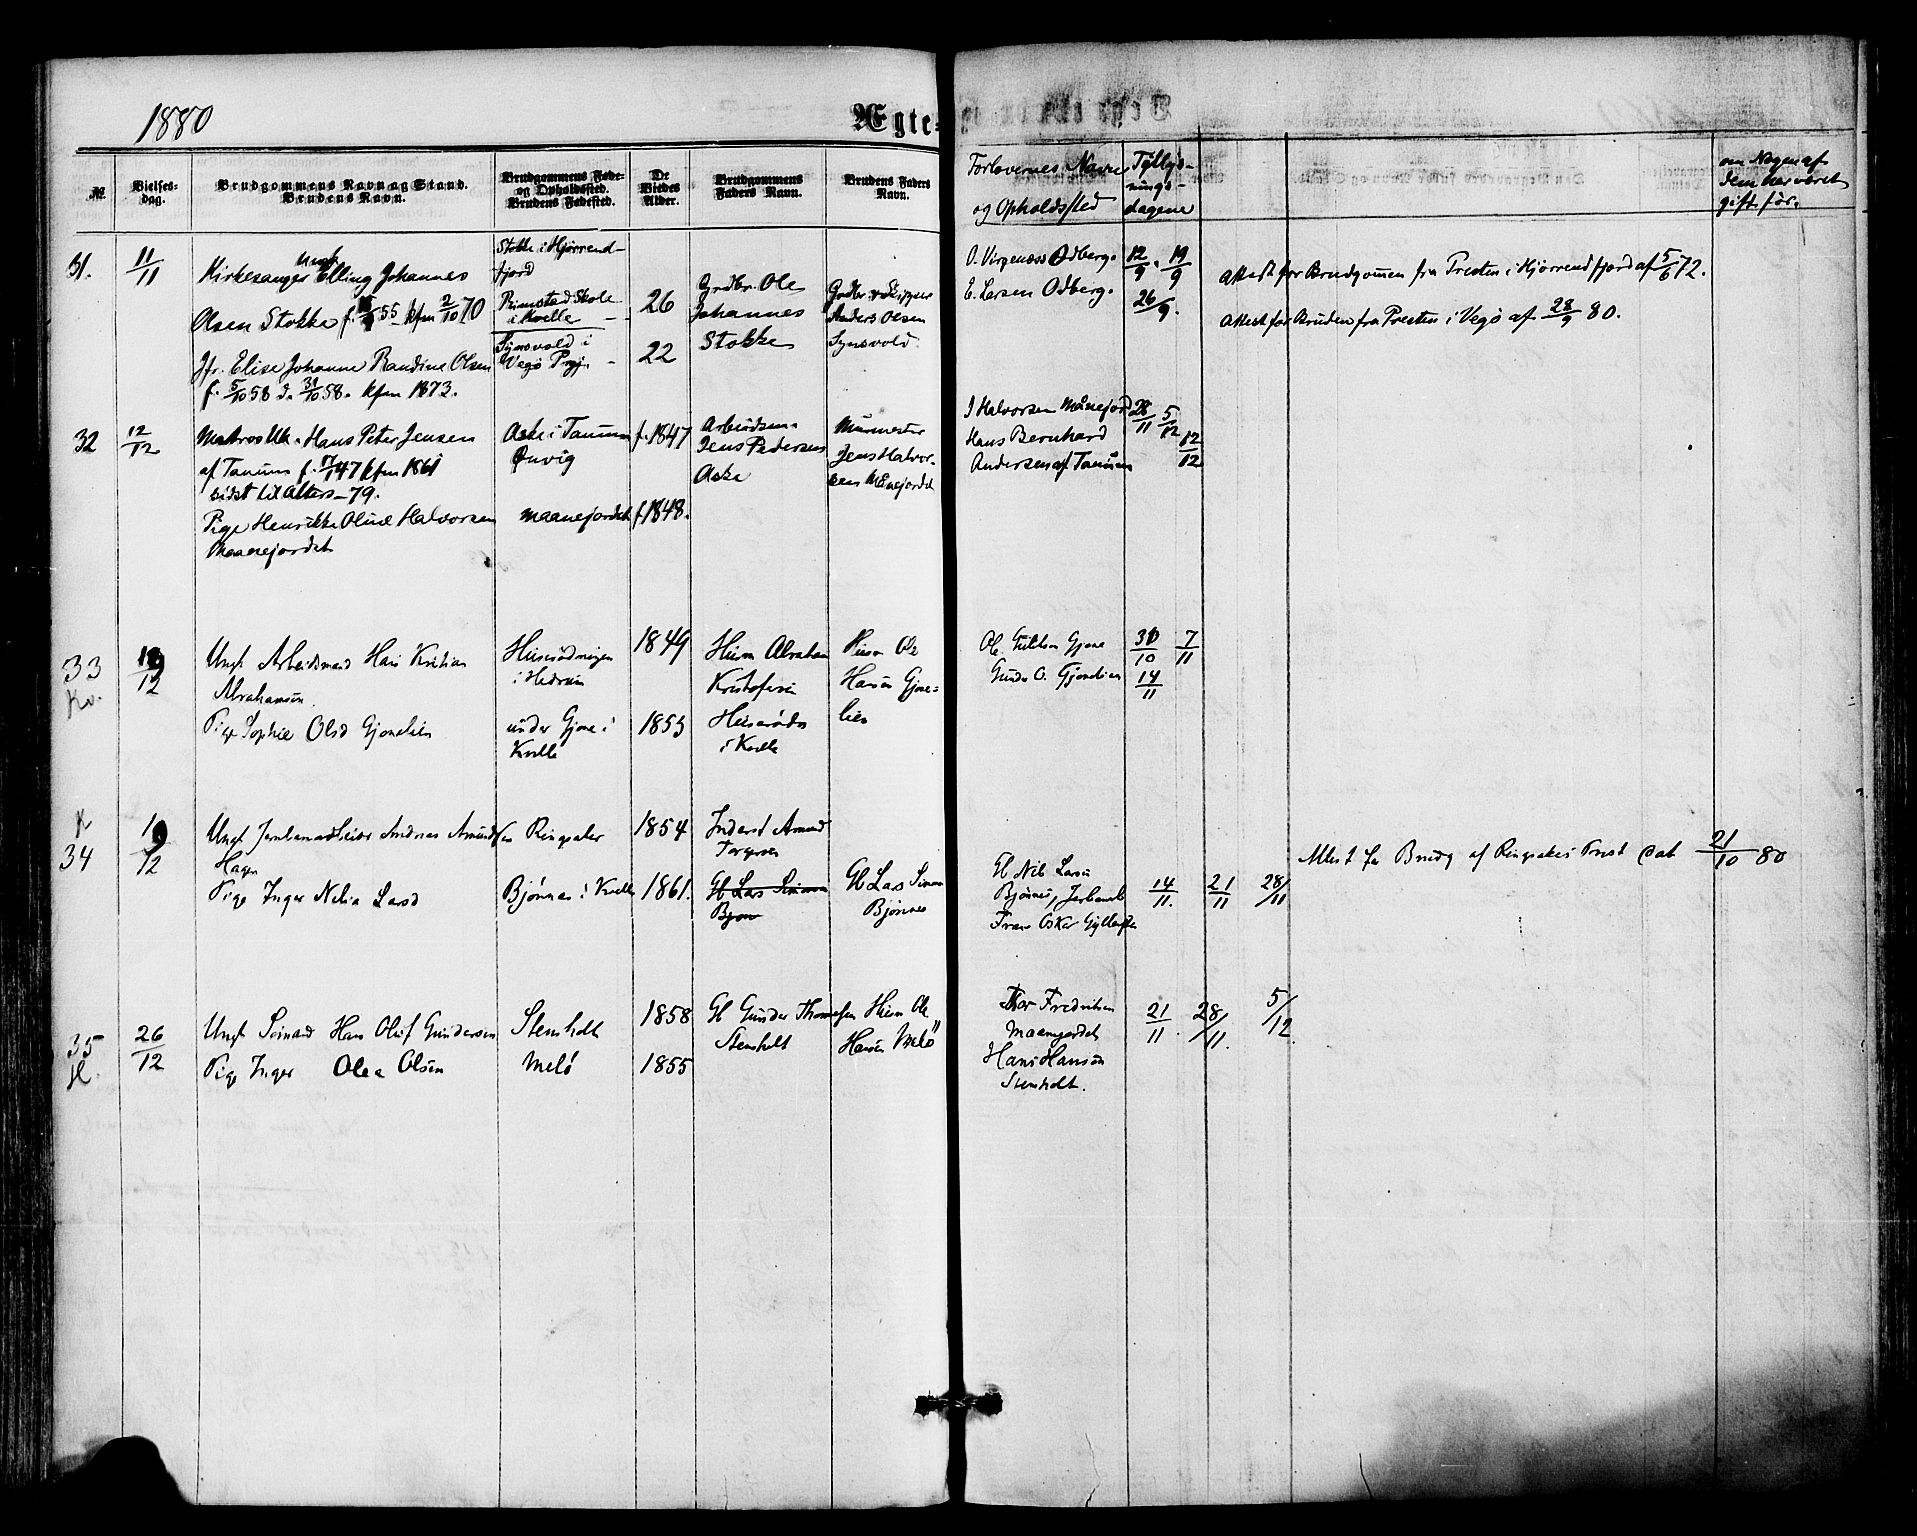 1880
Ægte-
№
Vielses-
dag.
Brudgommens Navn og Stand.
Brudens Navn.
Brudgommens Føde-
og Opholdssted.
Brudens Fødested.
De
Viedes
Alder.
Brudgommens
Faders Navn.
Brudens Faders
Navn.
Forlovernes Navn
og Opholdssted
Tyllys-
nings-
dagene
om Nogen af
dem har været
gift før.
31.
11/11
Ungk.
Kirkesanger Elling Johannes
Olsen Stokke f. 55 kfm 2/10 70
Jfr. Elise Johanne Randine Olsen
f. 5/10 58 d. 31/10 58. kfm 1873.
Stokke i Hjørrend-
fjord
Rimstad Skole
i Kvelle
Synsvold i
Vegø Prgj.
26
22
Grdbr. Ole
Johannes
Stokke
Grdbr. & Skipper
Anders Olsen
Synsvold.
O. Odberg.
E. Larsen Odberg.
12/9. 19/9
26/9.
Attest for Brudgommen fra Presten i Hjørrendfjord af 5/6 72.
Attest for Bruden fra Presten i Vegø af 28/9 80.
32
12/12
Matros Uk. Hans Peter Jensen
af Tanum f. 47 kfm 1861
sidst til Alters -79.
Pige Henrikke Oline Halvorsen
Maanejordet
Aske i Tanum
Ønvig
Maanejordet
f. 1847
f. 1848.
Arbeidsm.
Jens Pedersen
Aske
Murmester
Jens Halvor-
sen Månejordet
J Halvorsen Månejord
Hans Bernhard
Andersen af Tanum
28/11 5/12
12/12
33
Kv.
19/12
Ungk. Arbeidsmand Hans Kristian
Abrahamsen.
Pige Sophie Olsd Gjonelien
i Hedrum
under Gjone i
Kvelle
1849
1853
Husm Abraham
Kristofersen
i Kvelle
Husm Ole
Hansen Gjone-
lien
Ole Gjone
Gunder O. Gjonelien
31/10 7/11
14/11
K
34
19/12
Ungk Jernbanearbeider Andreas Amundsen
Hagen
Pige Inger Nelia Larsd
Ringsaker
Bjønnes i Kvelle
1854
1861.
Inderst Amund
Torgersen
Gb Lars Simonsen
Bjøn
Gb Lars Simon
Bjønnes
Gb Nils Larsen
Bjønnes, Jerbanearb
Frans Oskar
14/11. 21/11 28/11
Attest for Brudg af Ringsakers Prest dat 21/10 80
35
H.
26/12
Ungk Sømand Hans Oluf Gundersen
Pige Inger Olea Olsen
Stensholt
Melø
1858
1855
Gb Gunder Thomesen
Stensholt
Husm Ole
Hansen Melø
Thor Fredriksen
Maanejordet
Hans Hansen
Stensholt.
21/11. 28/11. 5/12.